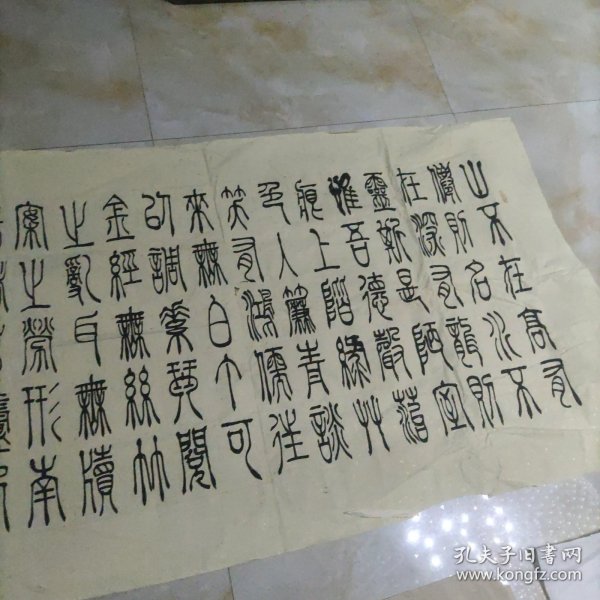 山不在高有
僊則名水不
在深有龍則
靈斯是陋室
惟吾德馨苔
痕上階綠艸
色入簾青談
笑有鴻儒往
來無白丁可
以調素琴閱
金經無絲竹
之亂耳無牘
案之勞形南
孔夫子旧书网
www.kongfz.com